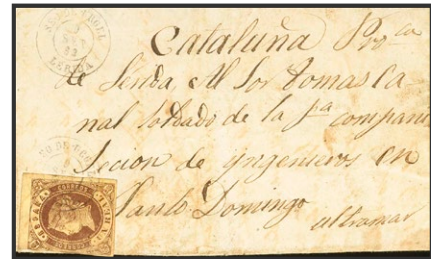 Cataluña Pro ca
de Lerida Al Sor Tomas Ca
nal Soldado de la 1a compani
Secion de yngenieros en
Santo Domingo
ultramar
LERIDA
CORREOS